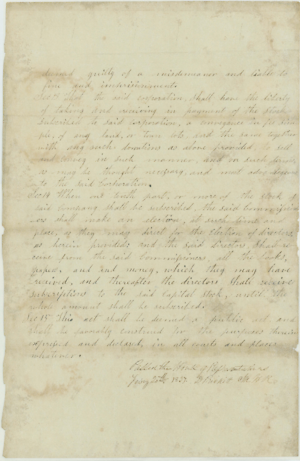 deemed guilty of a misdemeanor and liable to
fine and imprisonment
Sec 13 That the said corporation shall have the liberty
of taking and receiving in payment of the stock
subscribed to said corporation, a conveyance in fee sim
ple, of any land, or town lots, and the same together
with any such donations as above provided, to sell
in such manner, and on such terms
as may be thought necessary, and most advantageous
to the said Corporation.
Sec 14 When one tenth part, or more of the stock of
said company shall be subscribed, the said Commissioners
shall make an election, at such time and
place, as they may direct for the election of directors
as herein provided; and the said directors shall re
ceive from the said Commissioners, all the books,
papers, and and money, which they may have
received, and thereafter the directors shall receive
subscriptions to the said capital stock, until the
amount shall be subscribed.
Sec 15 This act shall be deemed a public act and
shall be liberally construed for the purposes therein
expressed and declared, in all courts and places
whatever.
Passed the House of Representatives